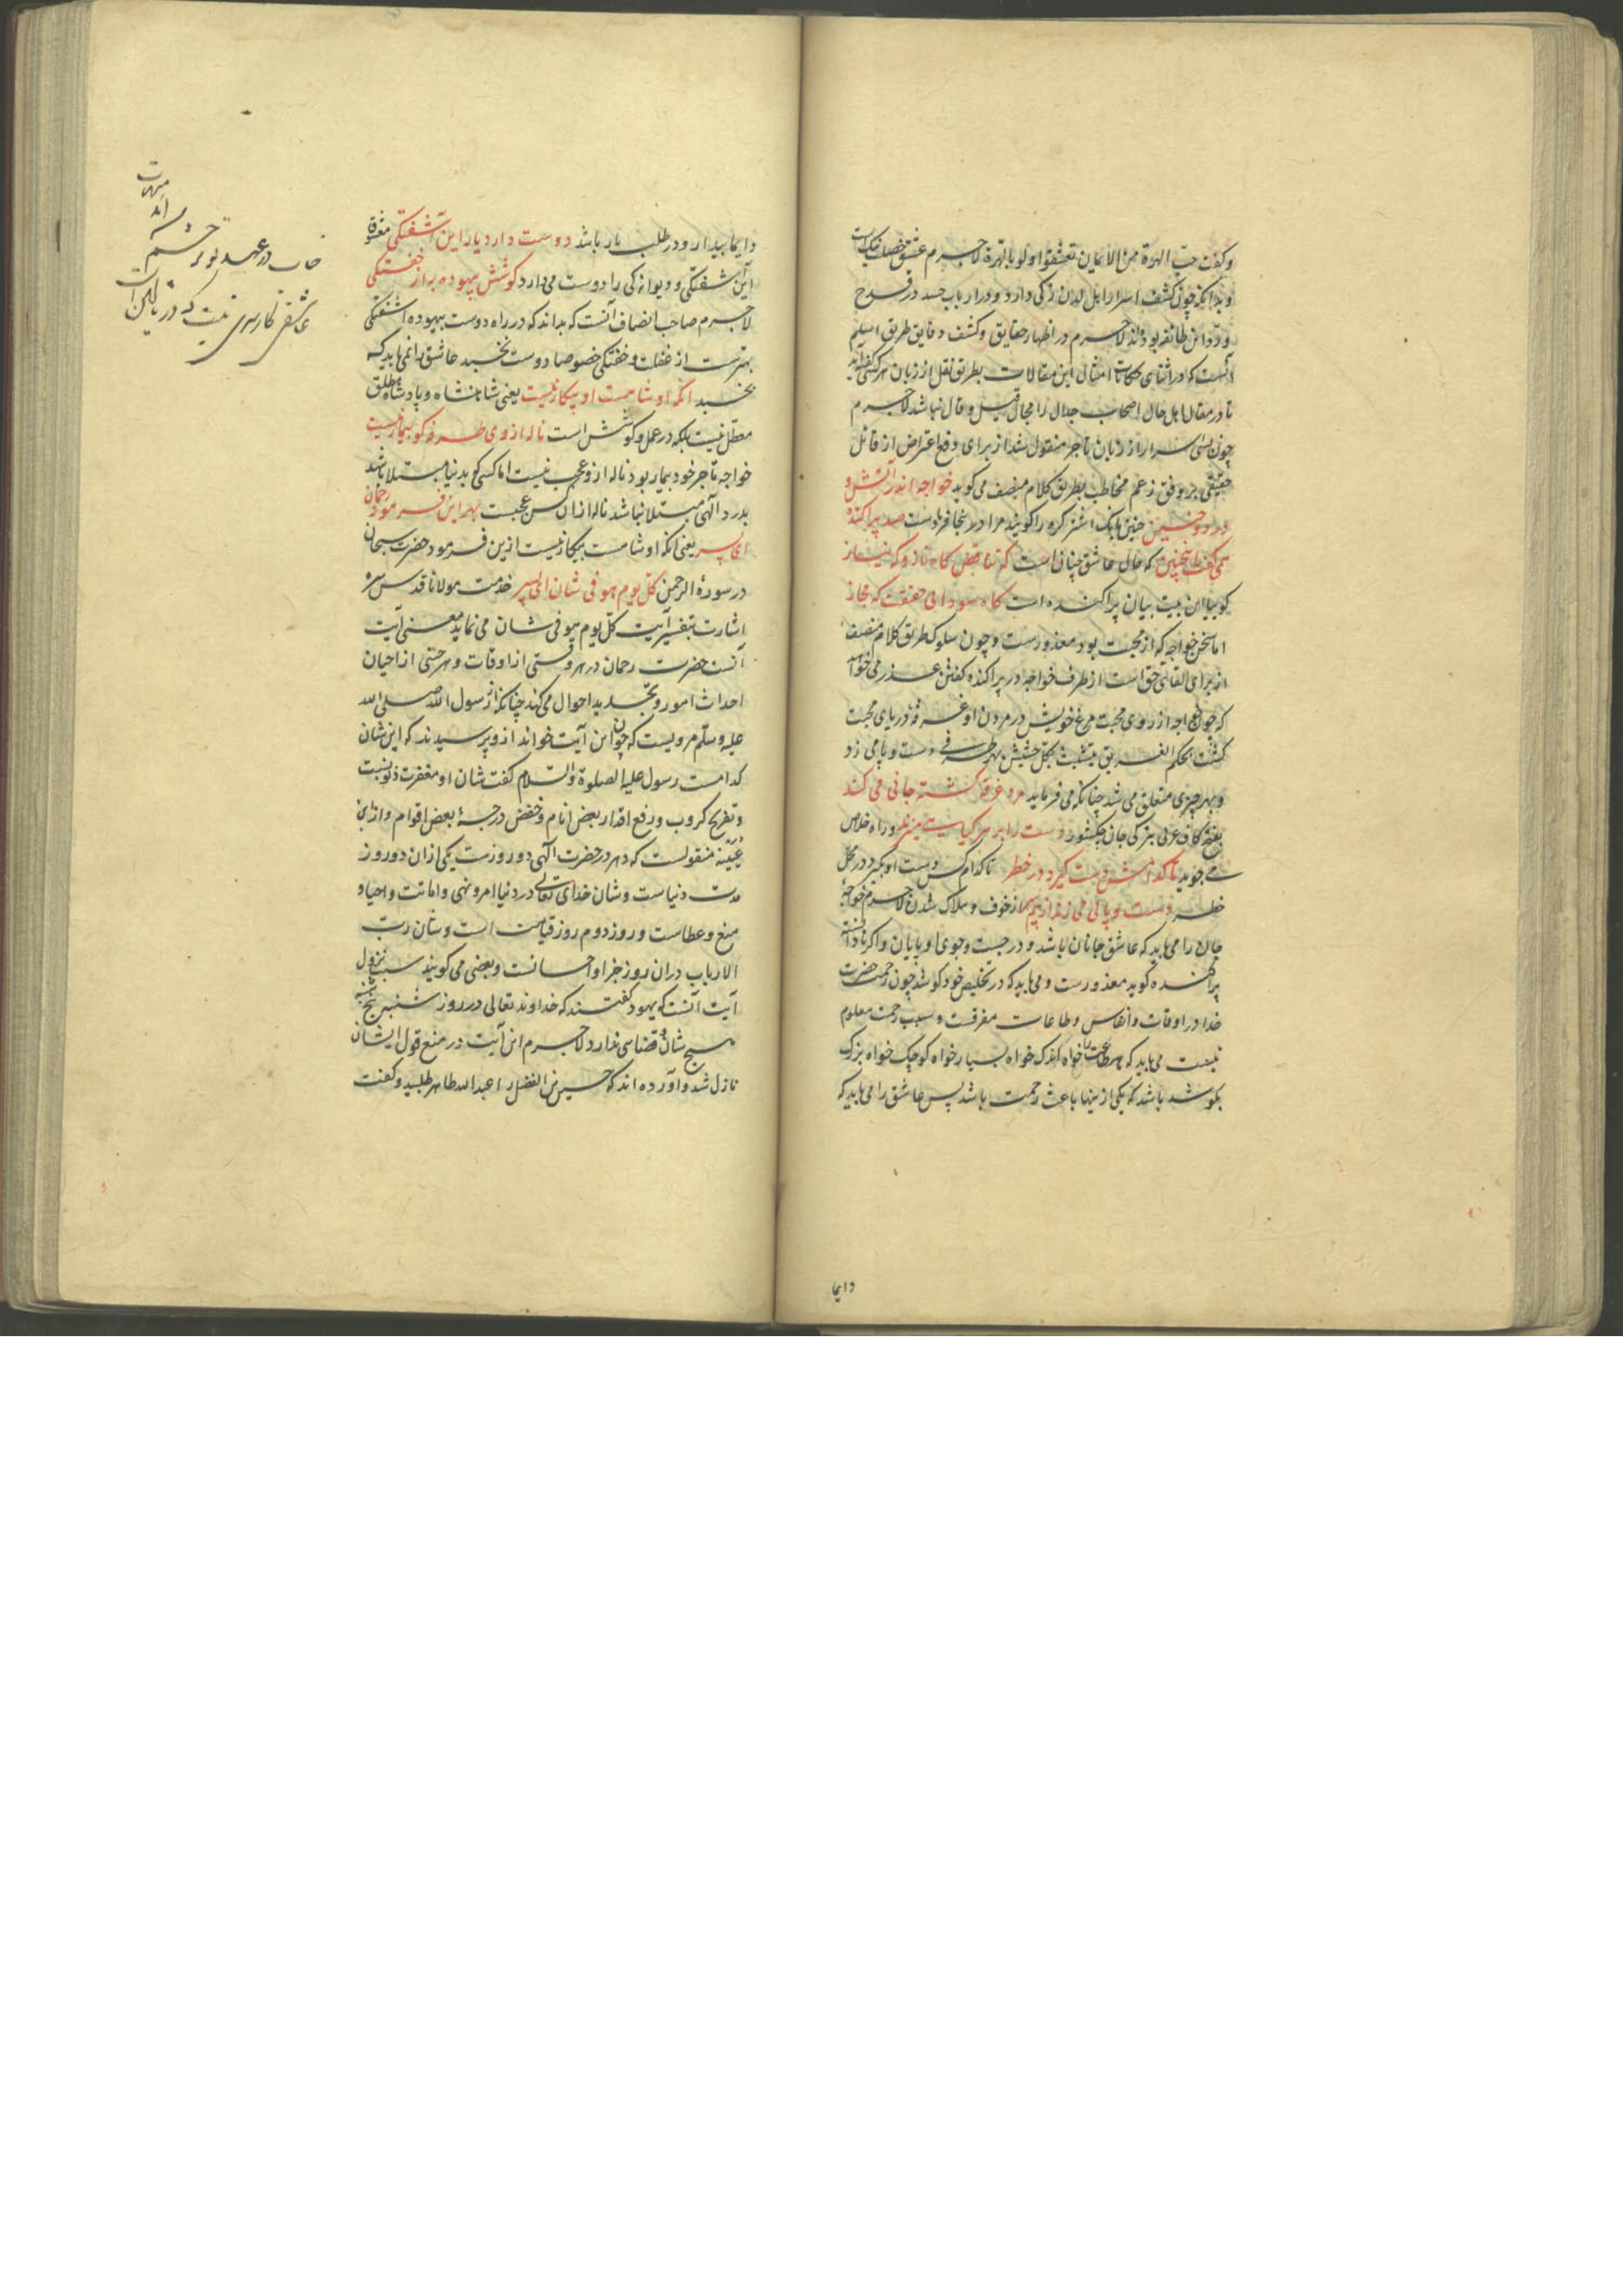 وکفت حبّ الهرة من الایمان تعشقوا ولو بالهرة لاجرم عشق خصلت نیک است
وبدانکه چون کشف اسرار اهل لدن زکی دارد ودر ارباب حسد در قدح
ورد این طائفه بوده اند لاجرم در اظهار حقایق وکشف دقایق طریق اسلم
آنست که در اثنای حکایات امثال این مقالات بطریق نقل از زبان هرکس گفته آید
تا در مقال اهل حال اصحاب جدال را مجال قیل وقال نباشد لاجرم
چون این اسرار از زبان تاجر منقول شد از برای دفع اعتراض از قائل
حقیقی بر وفق زعم مخاطب بطریق کلام منصف می کوید خواجه اندر آتش و
درد وحنین حنین بانک اشتر کره را کویند مرا در اینجا فریادست صد پراکنده
همی گفت اینچنین که حال عاشق چنان است که تناقض کاه ناز وکه نیاز
کوییا این بیت بیان پراکنده است کاه سودای حقیقت که مجاز
اما سخن خواجه که از محبت بود معذورست وچون سلوک طریق کلام منصف
از برای القای حق است از طرف خواجه در پراکنده کفتن عذر می خواهد
که چون خواجه از روی محبت مرغ خویش در مردن او غرقه دریای محبت
کشت بحکم الغریق یتشبث بکل حشیش بهر طرفی دست وپا می زد
وبهر چیزی متعلق می شد چنانکه می فرماید مرد غرقه کشته جانی می کند
بفتح کاف عربی بترکی جان چکشور دست را بر هر کیاهی میزند وراه خلاص
می جوید تا کدامش دست کیرد در خطر تا کدام کس دست او بگیرد در محل
خطر دست وپائی می زند از بیم سر از خوف وهلاک شدن لاجرم خواجهٔ
جان را می باید که عاشق جانان باشد ودر جست وجوی او پایان واکر نادانسته
پراکنده کوید معذورست ومی باید که در تخلیص خود کوشد چون رحمت حضرت
خدا در اوقات وانفاس وطاعات متفرقست وسبب رحمت معلوم
نیست می باید که هر طاعت را خواه اندک خواه بسیار خواه کوچک خواه بزرک
بکوشد باشد که یکی از اینها باعث رحمت باشد پس عاشق را می باید که
دایما
دایما بیدار ودر طلب یار باشد دوست دارد یار این آشفتکی معشوق
این آشفتکی ودیوانه کی را دوست می دارد کوشش بیهوده به از خفتکی
لاجرم صاحب انصاف آنست که بداند که در راه دوست بیهوده آشفتکی
بهترست از غفلت وخفتکی خصوصا دوست نخسبد عاشق را نمی باید که
بخسبد آنکه او شاهست او بیکار نیست یعنی شاهنشاه وپادشاه مطلق
معطل نیست بلکه در عمل وکوشش است ناله از وی طرفه کو بیمار نیست
خواجه تاجر خود بیمار بود ناله از و عجب نیست اما کسی کو بدنیا مبتلا باشد
بدرد الهی مبتلا نباشد ناله از ان کس عجبست بهر این فرمود رحمان
ای پسر یعنی آنکه او شاهست بیکار نیست ازین فرمود حضرت سبحان
در سورهٔ الرحمن کل یوم هو فی شان ای پسر خدمت مولانا قدس سره
اشارت بتفسیر آیت کل یوم هو فی شان می نماید معنی آیت
آنست حضرت رحمان در هر وقتی از اوقات وهر حینی از احیان
احداث امور وتجدید احوال می کند چنانکه از رسول الله صلی الله
علیه وسلم مرویست که چون این آیت خواند ازو پرسیدند که این شان
کدامست رسول علیه الصلوة والسلام کفت شان او مغفرت ذنوبست
وتفریح کروب ورفع اقدار بعض انام وخفض درجهٔ بعض اقوام واز ابن
عُیَیْنه منقولست که دهر در حضرت الهی دو روزست یکی ازان دو روز
مدت دنیاست وشان خدای تعالی در دنیا امر ونهی واماتت واحیا و
منع وعطاست وروز دوم روز قیامت است وشان رب
الارباب دران روز جزا واحسانست وبعضی می کویند سبب نزول
آیت آنست که یهود کفتند که خداوند تعالی در روز شنبه
هیچ شان وقضاسی ندارد لاجرم این آیت در منع قول ایشان
نازل شد وآورده اند که حسین بن الفضل را عبدالله طاهر طلبید وکفت
در عهد تو